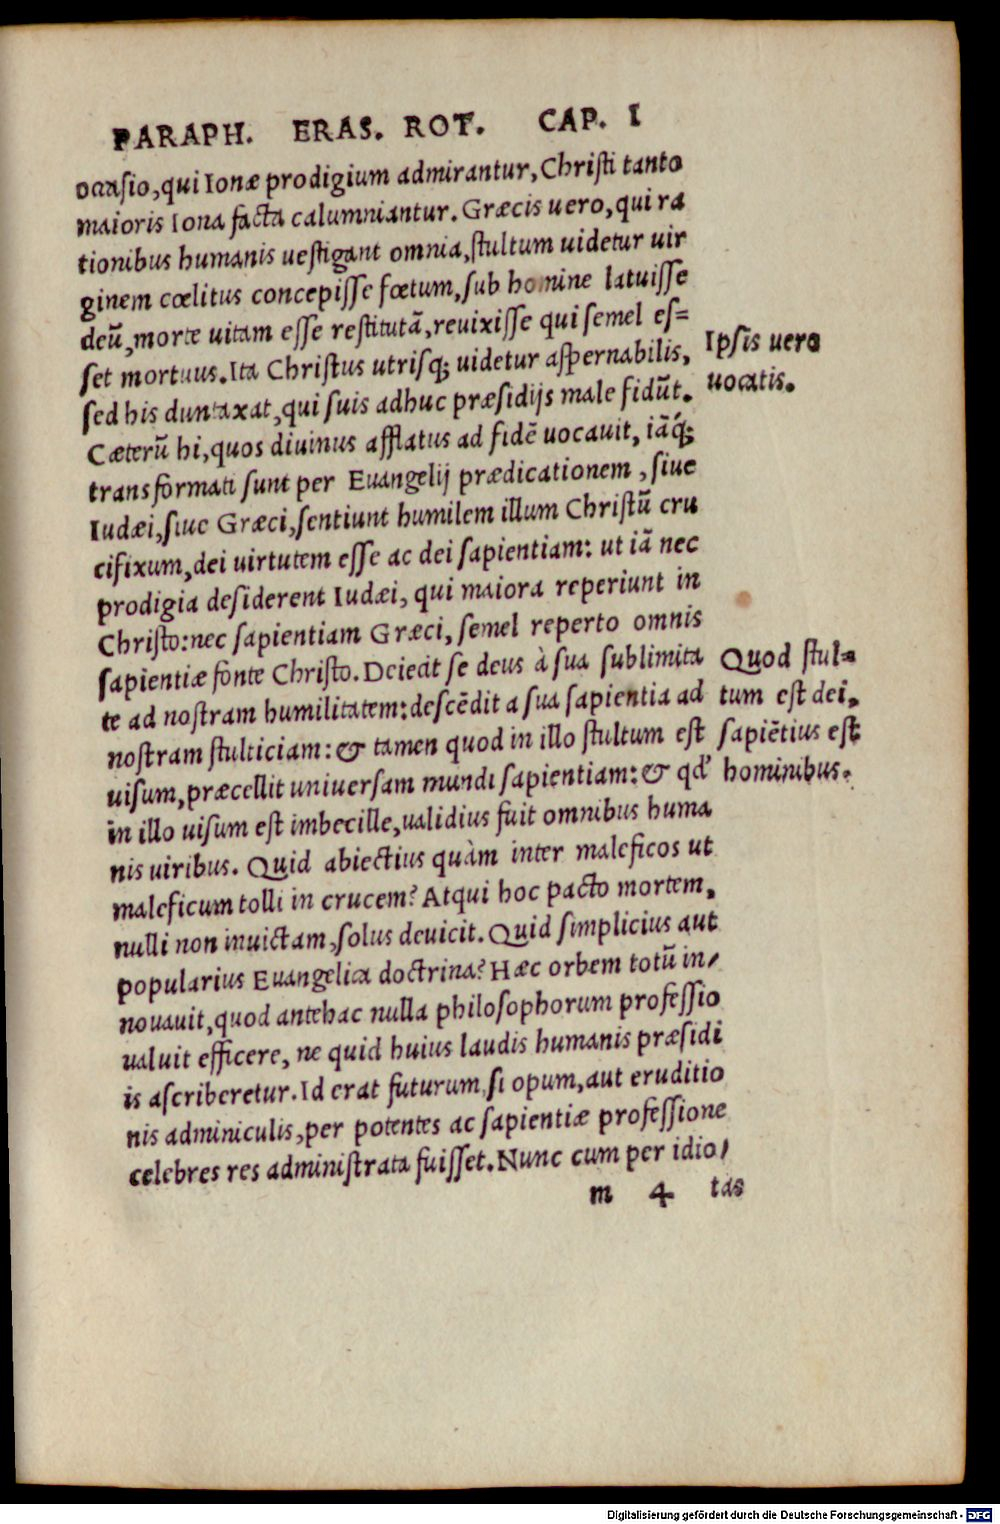 PARAPH. ERAS. ROT. CAP. I
occasio, qui Ionæ prodigium admirantur, Christi tanto
maioris Iona facta calumniantur. Græcis uero, qui ra
tionibus humanis uestigant omnia, stultum uidetur uir
ginem cœlitus concepisse fœtum, sub homine latuisse
deū, morte uitam esse restitutā, reuixisse qui semel es=
set mortuus. Ita Christus utrisq; uidetur aspernabilis,
sed his duntaxat, qui suis adhuc præsidijs male fidūt.
Cæterū hi, quos diuinus afflatus ad fidē uocauit, iāq́;
transformati sunt per Euangelij prædicationem, siue
Iudæi, siue Græci, sentiunt humilem illum Christū cru
cifixum, dei uirtutem esse ac dei sapientiam: ut iā nec
prodigia desiderent Iudæi, qui maiora reperiunt in
Christo: nec sapientiam Græci, semel reperto omnis
sapientiæ fonte Christo. Deiecit se deus à sua sublimita
te ad nostram humilitatem: descēdit a sua sapientia ad
nostram stulticiam: & tamen quod in illo stultum est
uisum, præcellit uniuersam mundi sapientiam: & qd'
in illo uisum est imbecille, ualidius fuit omnibus huma
nis uiribus. Quid abiectius quàm inter maleficos ut
maleficum tolli in crucem? Atqui hoc pacto mortem,
nulli non inuictam, solus deuicit. Quid simplicius aut
popularius Euangelica doctrina? Hæc orbem totū in/
nouauit, quod antehac nulla philosophorum professio
ualuit efficere, ne quid huius laudis humanis præsidi
is ascriberetur. Id erat futurum, si opum, aut eruditio
nis adminiculis, per potentes ac sapientiæ professione
celebres res administrata fuisset. Nunc cum per idio/
m 4 tas
Ipsis uero
uocatis.
Quod stul=
tum est dei,
sapiētius est
hominibus.
Digitalisierung gefördert durch die Deutsche Forschungsgemeinschaft - DFG